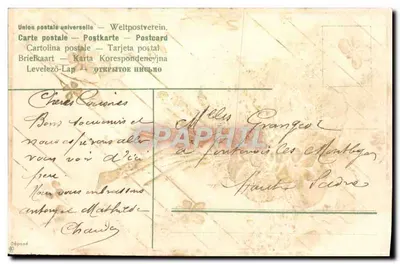 Union postale universelle — Weltpostverein.
Carte postale — Postkarte — Postcard
Cartolina postale — Tarjeta postal
Briefkaart — Karta Korespondencyjna
Levelező-Lap — ОТКРЫТОЕ ПИСЬМО
Chères Cousines
Bons souvenirs et
nous espérons de
vous voir d'ici
peu.
Nous vous embrassons
Mathilde
Mlles Grangeot
à Fontenois les Montbozon
Haute Saône
PAPHILL
Déposé